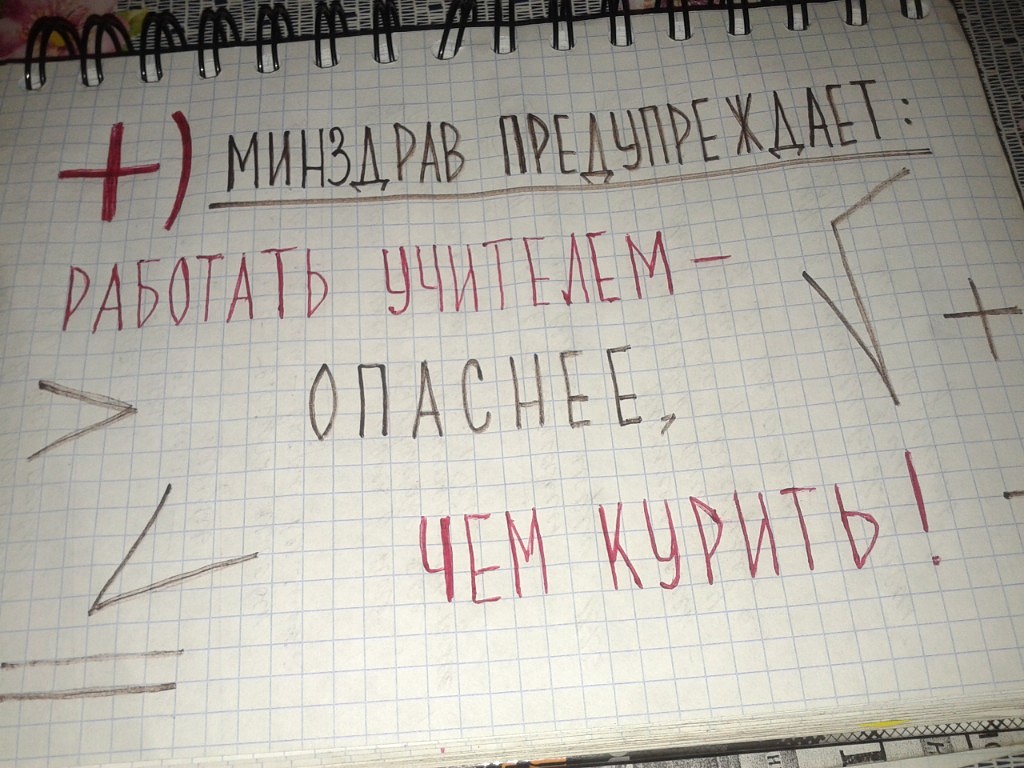 +) МИНЗДРАВ ПРЕДУПРЕЖДАЕТ:
РАБОТАТЬ УЧИТЕЛЕМ —
ОПАСНЕЕ,
ЧЕМ КУРИТЬ!